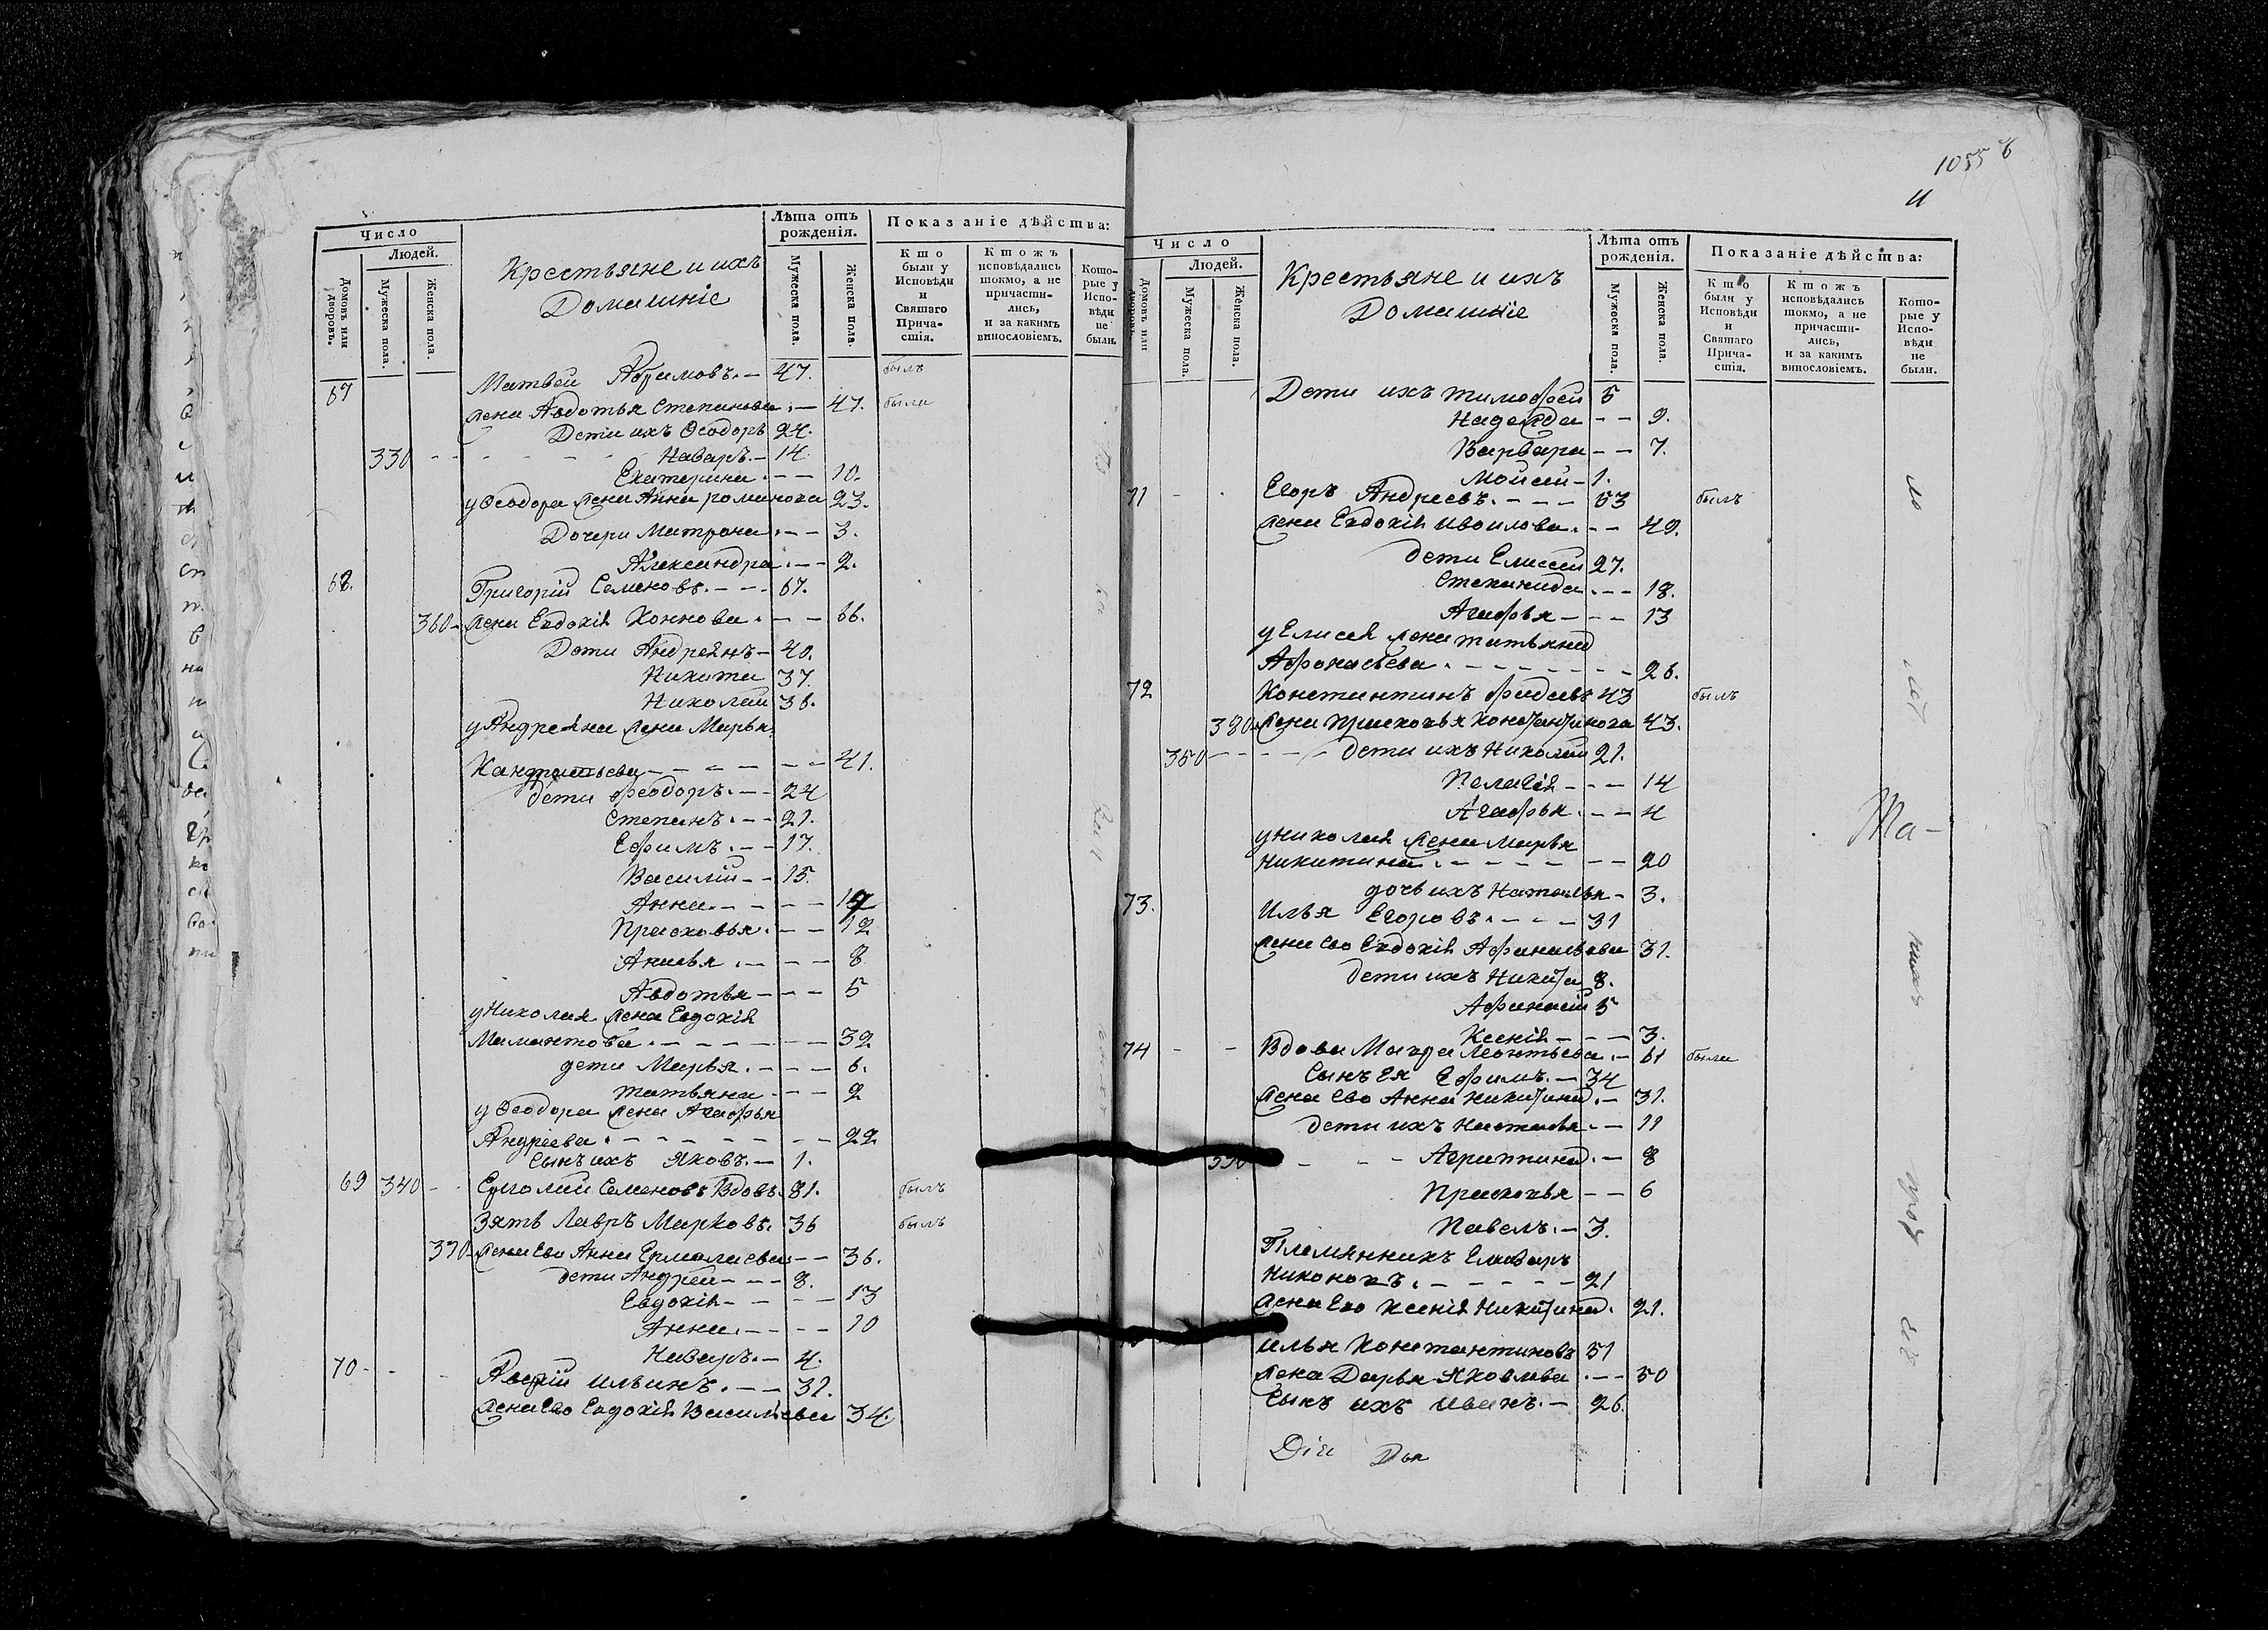 Число
Людей.
Домовъ или дворовъ.
Мужеска пола.
Женска пола.
Крестьяне и ихъ
Домашніе
Лѣта отъ рожденія.
Мужеска пола.
Женска пола.
Показаніе дѣйства:
Кто были у Исповѣди и Святаго Причастія.
Ктожъ исповѣдались токмо, а не причастились, и за какимъ винословіемъ.
Которые у Исповѣди не были.
67 Матвей Абрамовъ. — 47. былъ
жена Авдотья Степанова. — 47. была
Дети ихъ Ѳеодоръ 24.
330 - - - - - Назаръ. — 14.
Екатерина. — — 10.
у Ѳеодора жена Анна романова 23.
Дочери Матрона. — — 3.
Александра. — — 2.
68. Григорій Семеновъ. — — 67.
360 - жена Евдокія Кононова. — — 66.
Дети Андреянъ — 40.
Никита 37.
Николай 36.
у Андреяна жена Марья
Кандратьева - - - - - - 41.
дети Феодоръ. — — 24
Степанъ. — — 21.
Ефимъ. — — 17.
Василій — — 15.
Анна. — — — —
Прасковья. — — 12
Анисья. — — — 8
Авдотья — — — 5
у Николая жена Евдокія
Мамонтова. — — — — — — 32
дети Марья. — — — 6.
татьяна - — — 2
у Ѳеодора жена Агафья
Андреева. — — — — — — — 22
Сынъ ихъ Яковъ. — 1.
69 340 - Ермолай Семеновъ Вдовъ. 81. былъ
Зять Лавръ Марковъ. 36 былъ
370 - жена Ево Анна Ермолаева — — 36.
дети Андрей — — — 8.
Евдокія — — — — 13
Анна. — — — — 10
Назаръ. — 4.
70 - - - ильинъ. — — 32.
жена Ево Евдокія Васильева 34.
1055
11
Число
Людей.
Домовъ или дворовъ.
Мужеска пола.
Женска пола.
Крестьяне и ихъ
Домашніе
Лѣта отъ рожденія.
Мужеска пола.
Женска пола.
Показаніе дѣйства:
Кто были у Исповѣди и Святаго Причастія.
Ктожъ исповѣдались токмо, а не причастились, и за какимъ винословіемъ.
Которые у Исповѣди не были.
Дети ихъ тимофей 5
Надежда — — 9.
Варвара — — 7.
Мойсей — 1.
71 - - Егоръ Андреевъ. — — — 53 былъ
жена Евдокія Иваилова. — — 49.
дети Елисей 27.
Степанида. — — 18.
Агафья — — — 13
у Елисея жена татьяна
Афонасьева. — — — — — — — 26.
72 Константинъ 43 былъ
380 жена прасковья Константинова 43.
350 - - - - - дети ихъ Николай 21.
Пелагія — — — 14
Агафья. — — 4
у николая жена марья
никитина. — — — — — — 20
дочь ихъ Наталья — 3.
73. Илья Егоровъ. — — — 31
жена ево Евдокія Афанасьева 31.
дети ихъ Никита 8.
Афанасій 5
Ксенія — — — 3.
74 - - Вдова Мавра Леонтьева. — 61 была
Сынъ Ея Ефимъ. — 34
жена Ево Анна никитина. — 31.
дети ихъ Наталья. — 11
390 - - - Агрипина. — 8
Прасковья — — 6
Павелъ. — 3.
Племянникъ Елизаръ
Никоновъ. — — — — — — 21
жена Ево Ксенія Никитина. 21.
илья Константиновъ 51
жена Дарья Яковлева. — — 50
Сынъ ихъ Иванъ. — 26.
Та-